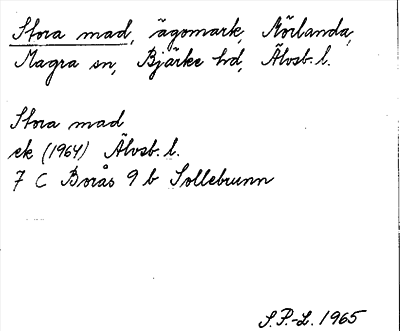 Stora mad, ägomark, Mörlanda,
Magra sn, Bjärke hd, Älvsb. l.
Stora mad
ek (1964) Älvsb. l.
7 C Borås 9 b Sollebrunn
S.P.-L. 1965